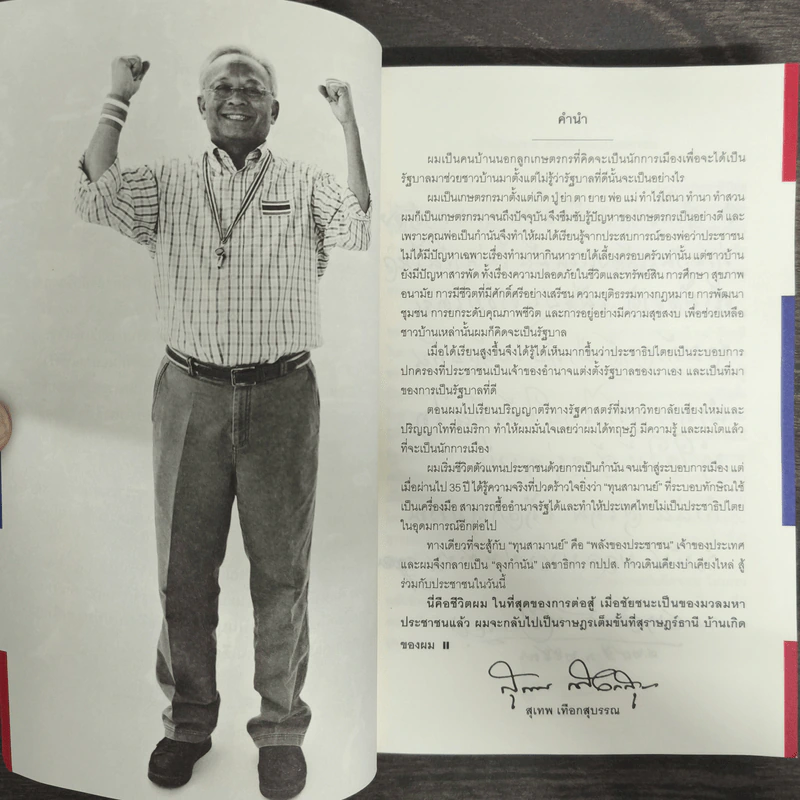 คำนำ
ผมเป็นคนบ้านนอกลูกเกษตรกรที่คิดจะเป็นนักการเมืองเพื่อจะได้เป็น
รัฐบาลมาช่วยชาวบ้านมาตั้งแต่ไม่รู้ว่ารัฐบาลที่ดีนั้นจะเป็นอย่างไร
ผมเป็นเกษตรกรมาตั้งแต่เกิด ปู่ ย่า ตา ยาย พ่อ แม่ ทำไร่ไถนา ทำนา ทำสวน
ผมก็เป็นเกษตรกรมาจนถึงปัจจุบัน จึงซึมซับรู้ปัญหาของเกษตรกรเป็นอย่างดี และ
เพราะคุณพ่อเป็นกำนันจึงทำให้ผมได้เรียนรู้จากประสบการณ์ของพ่อว่าประชาชน
ไม่ได้มีปัญหาเฉพาะเรื่องทำมาหากินหารายได้เลี้ยงครอบครัวเท่านั้น แต่ชาวบ้าน
ยังมีปัญหาสารพัด ทั้งเรื่องความปลอดภัยในชีวิตและทรัพย์สิน การศึกษา สุขภาพ
อนามัย การมีชีวิตที่มีศักดิ์ศรีอย่างเสรีชน ความยุติธรรมทางกฎหมาย การพัฒนา
ชุมชน การยกระดับคุณภาพชีวิต และการอยู่อย่างมีความสุขสงบ เพื่อช่วยเหลือ
ชาวบ้านเหล่านั้นผมก็คิดจะเป็นรัฐบาล
เมื่อได้เรียนสูงขึ้นจึงได้รู้ได้เห็นมากขึ้นว่าประชาธิปไตยเป็นระบอบการ
ปกครองที่ประชาชนเป็นเจ้าของอำนาจแต่งตั้งรัฐบาลของเราเอง และเป็นที่มา
ของการเป็นรัฐบาลที่ดี
ตอนผมไปเรียนปริญญาตรีทางรัฐศาสตร์ที่มหาวิทยาลัยเชียงใหม่และ
ปริญญาโทที่อเมริกา ทำให้ผมมั่นใจเลยว่าผมได้ทฤษฎี มีความรู้ และผมโตแล้ว
ที่จะเป็นนักการเมือง
ผมเริ่มชีวิตตัวแทนประชาชนด้วยการเป็นกำนัน จนเข้าสู่ระบอบการเมือง แต่
เมื่อผ่านไป 35 ปี ได้รู้ความจริงที่ปวดร้าวใจยิ่งว่า "ทุนสามานย์" ที่ระบอบทักษิณใช้
เป็นเครื่องมือ สามารถซื้ออำนาจรัฐได้และทำให้ประเทศไทยไม่เป็นประชาธิปไตย
ในอุดมการณ์อีกต่อไป
ทางเดียวที่จะสู้กับ "ทุนสามานย์" คือ "พลังของประชาชน" เจ้าของประเทศ
และผมจึงกลายเป็น "ลุงกำนัน" เลขาธิการ กปปส. ก้าวเดินเคียงบ่าเคียงไหล่ สู้
ร่วมกับประชาชนในวันนี้
นี่คือชีวิตผม ในที่สุดของการต่อสู้ เมื่อชัยชนะเป็นของมวลมหา
ประชาชนแล้ว ผมจะกลับไปเป็นราษฎรเต็มขั้นที่สุราษฎร์ธานี บ้านเกิด
ของผม
สุเทพ เทือกสุบรรณ